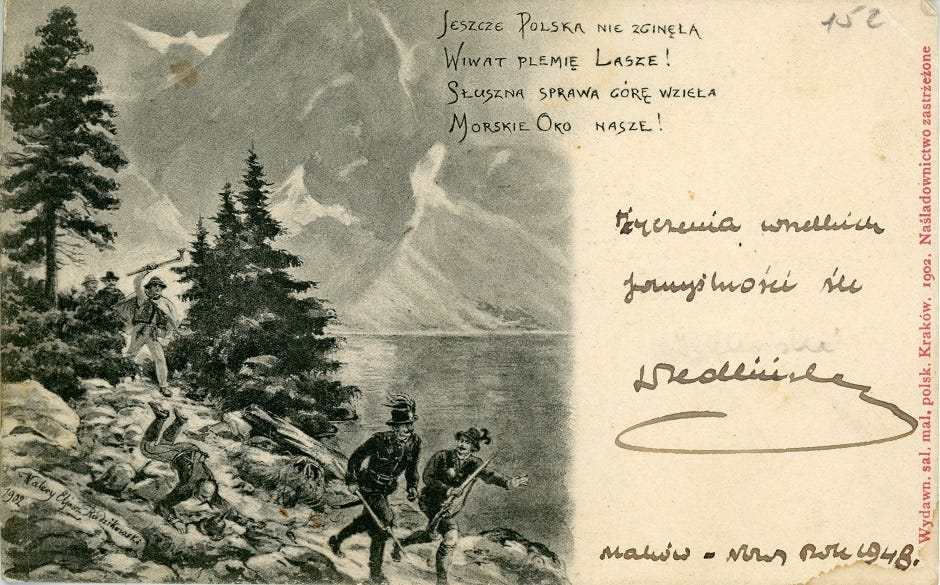 Jeszcze Polska nie zginęła
Wiwat plemię Lasze!
Słuszna sprawa górę wzięła
Morskie Oko nasze!
152
Życzenia wszelkich
pomyślności śle
Maków - Nowy Rok 1948.
Walery Eljasz Radzikowski
1902
Wydawn. sal. mal. polsk. Kraków. 1902. Naśladownictwo zastrzeżone